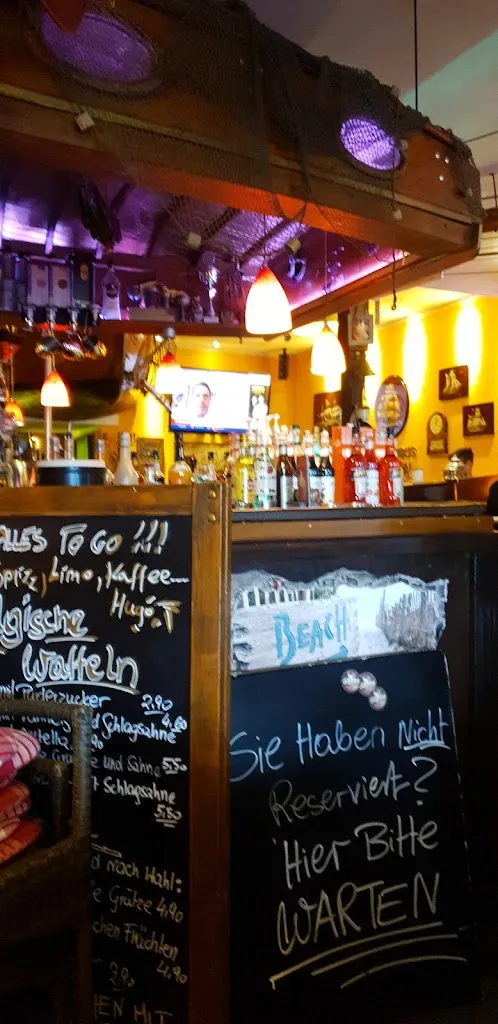 ALLES TO GO !!!
Spizz, Limo, Kaffee
Hugo
Waffeln
mit Puderzucker 2.90
Schlagsahne 4.60
und Sahne 5.50
Schlagsahne
5.50
nach Wahl:
Grütze 4.90
Früchten
4.90
2.90
MIT
BEACH
Sie Haben Nicht
Reserviert?
Hier Bitte
WARTEN